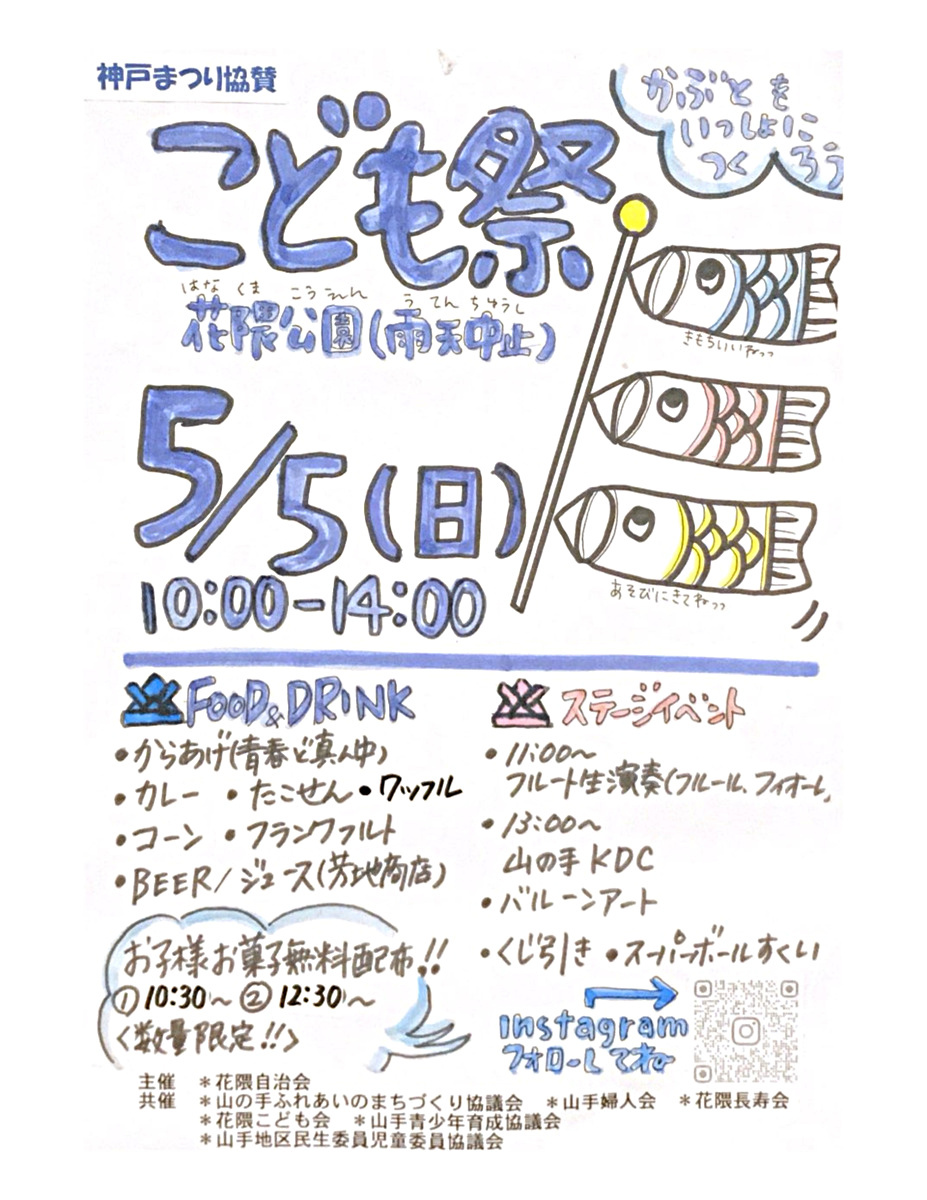 神戸まつり協賛
かぶとを
いっしょに
つくろう
こども祭
はな くま こうえん うてんちゅうし
花隈公園(雨天中止)
きもちいいねっっ
5/5(日)
10:00-14:00
あそびにきてねっっ
FOOD&DRINK
・からあげ(青春ど真ん中)
・カレー ・たこせん・ワッフル
・コーン ・フランクフルト
・BEER/ジュース(芳地商店)
お子様お菓子無料配布!!
①10:30~②12:30~
<数量限定!!>
ステージイベント
・11:00~
フルート生演奏(フルール、フィオーレ)
・13:00~
山の手KDC
・バルーンアート
・くじ引き・スーパーボールすくい
Instagram
フォローしてね
主催 *花隈自治会
共催 *山の手ふれあいのまちづくり協議会 *山手婦人会 *花隈長寿会
*花隈こども会 *山手青少年育成協議会
*山手地区民生委員児童委員協議会